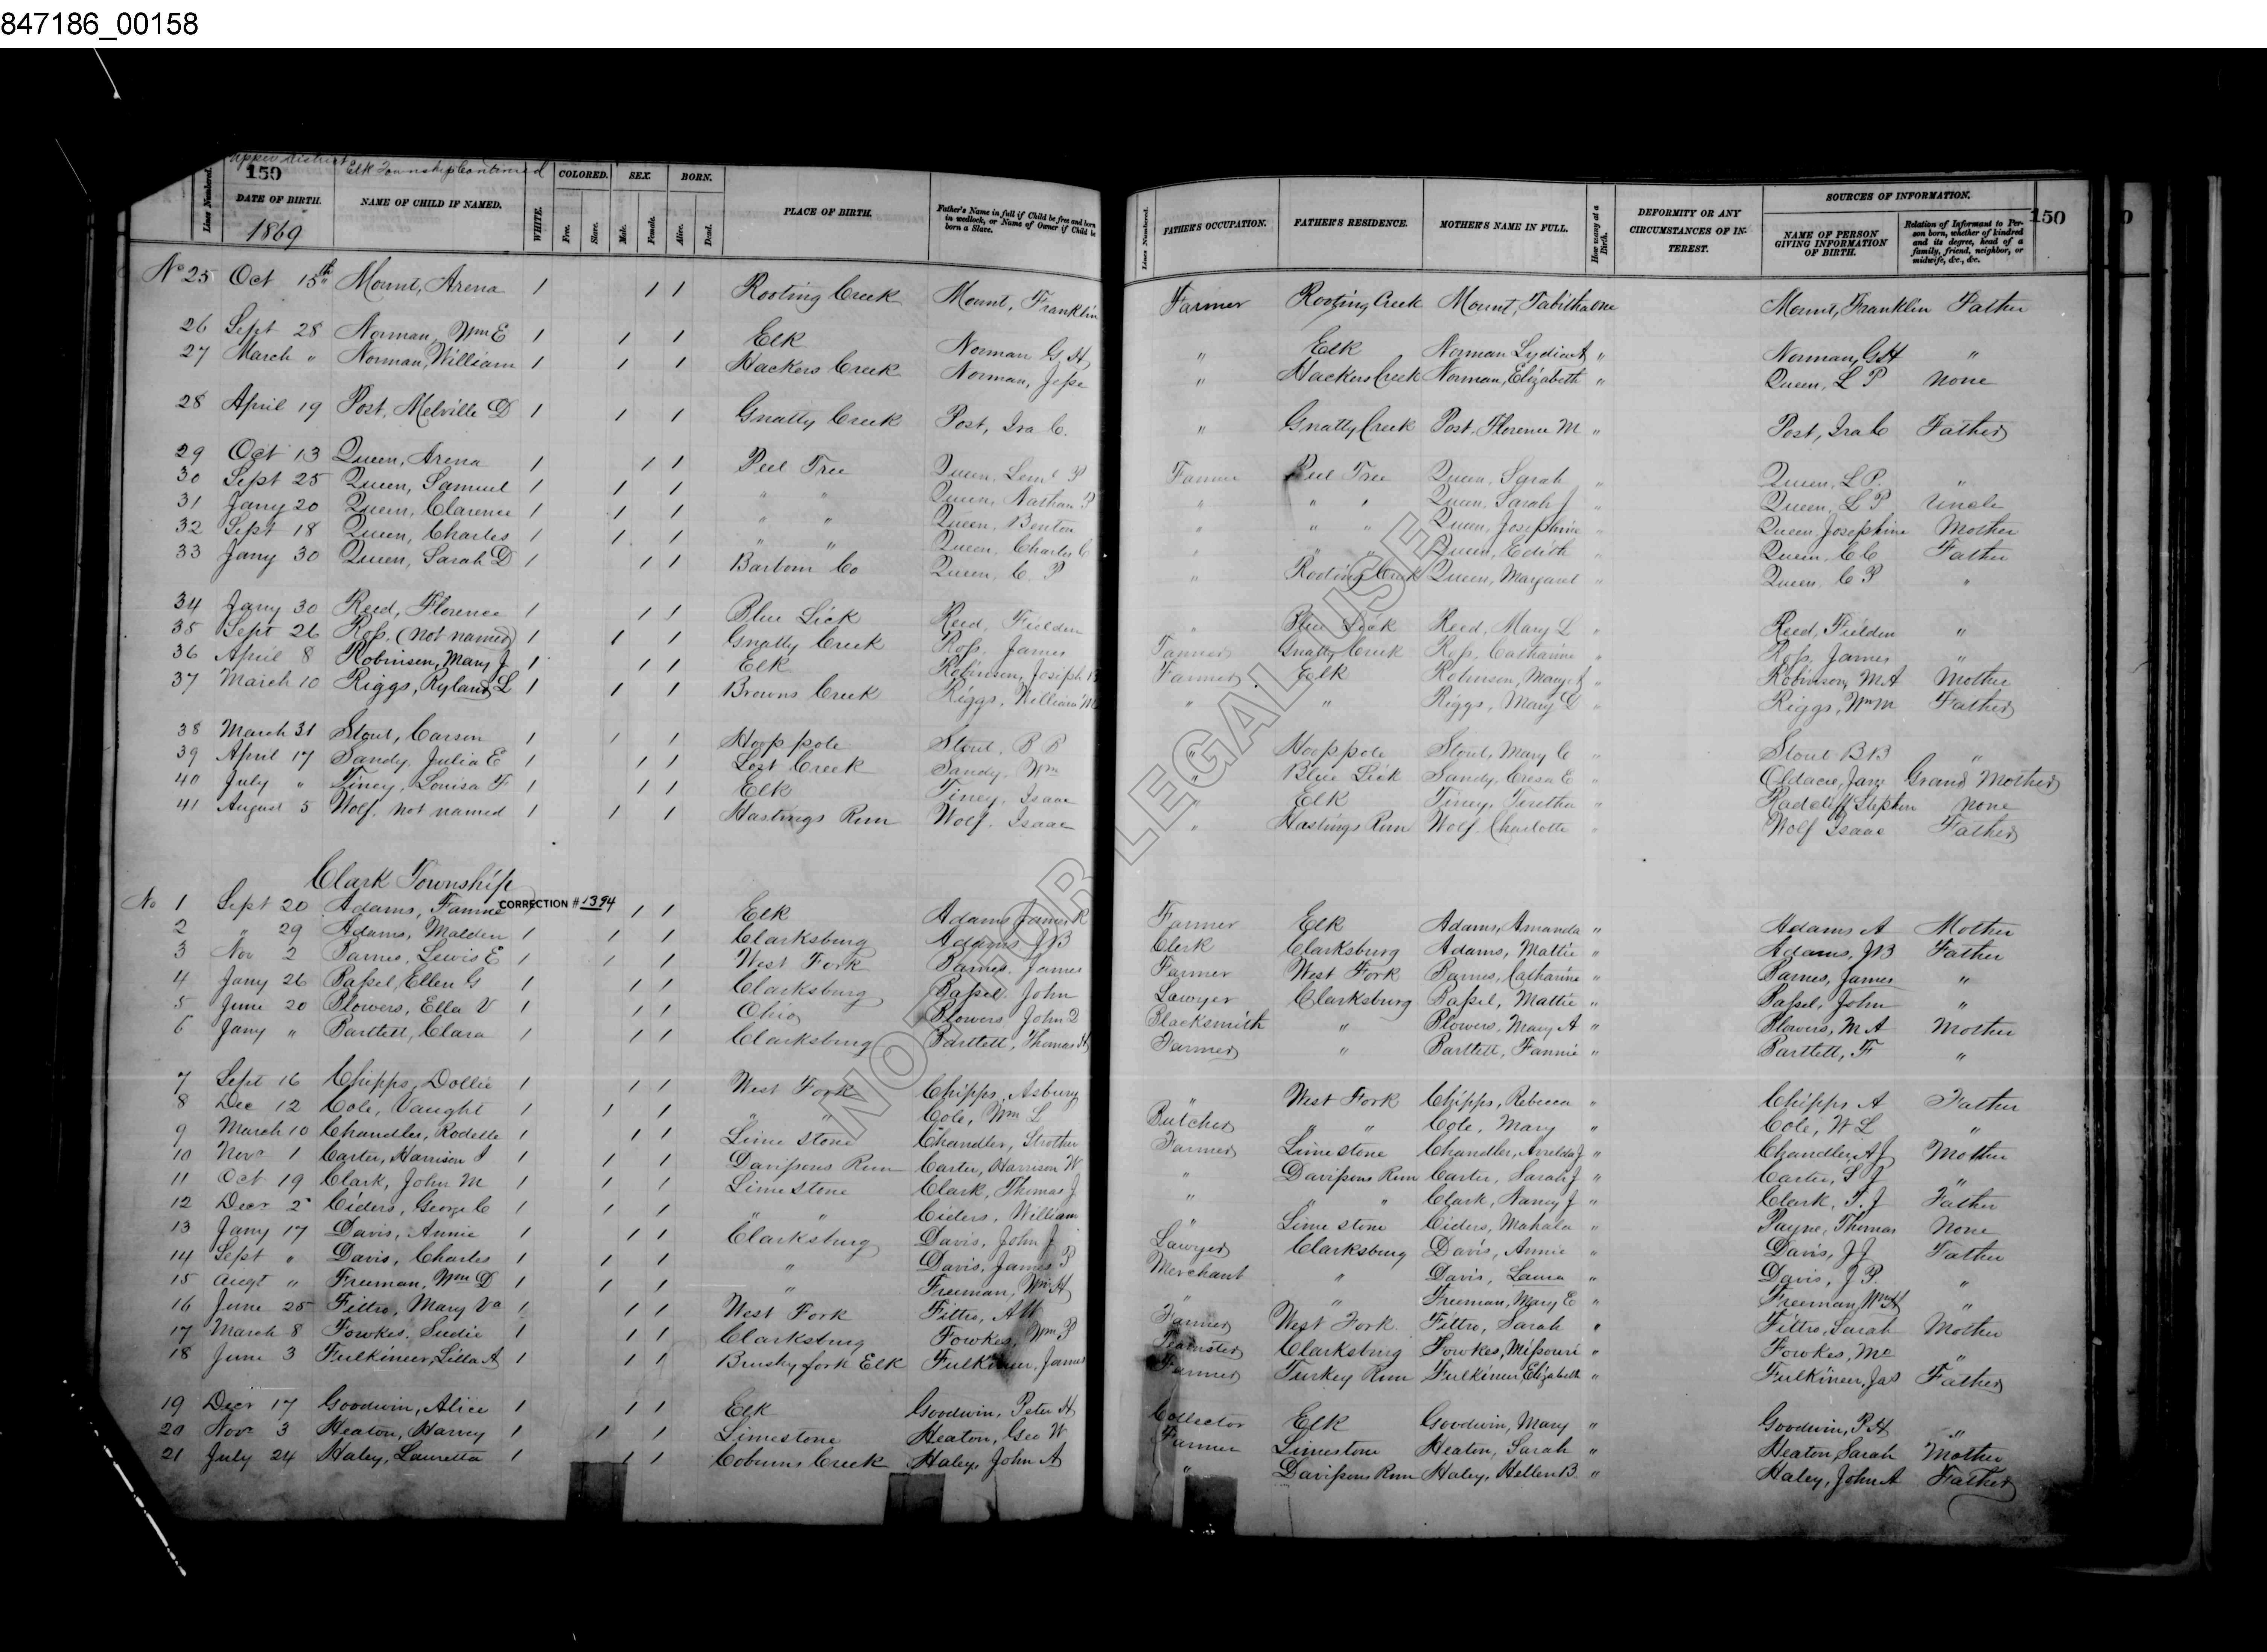 847186_00158
Upper District
150 Elk Township Continued
Lines Numbered. DATE OF BIRTH. NAME OF CHILD IF NAMED. WHITE. COLORED. Free. Slave. SEX. Male. Female. BORN. Alive. Dead. PLACE OF BIRTH. Father's Name in full if Child be free and born in wedlock, or Name of Owner if Child be born a Slave. Lines Numbered. FATHER'S OCCUPATION. FATHER'S RESIDENCE. MOTHER'S NAME IN FULL. How many at a Birth. DEFORMITY OR ANY CIRCUMSTANCES OF INTEREST. SOURCES OF INFORMATION. NAME OF PERSON GIVING INFORMATION OF BIRTH. Relation of Informant to Person born, whether of kindred and its degree, head of a family, friend, neighbor, or midwife, &c., &c. 150
1869
No 25 Oct 15th Mount, Arena 1 1 1 Rooting Creek Mount, Franklin Farmer Rooting Creek Mount, Tabitha one Mount, Franklin Father
26 Sept 28 Norman, Wm E 1 1 1 Elk Norman G H " Elk Norman Lydia A " Norman, G H "
27 March " Norman, William 1 1 1 Hackers Creek Norman, Jesse " Hackers Creek Norman, Elizabeth " Queen, L P None
28 April 19 Post, Melville D 1 1 1 Gnatty Creek Post, Ira C. " Gnatty Creek Post, Florence M " Post, Ira C Father
29 Oct 13 Queen, Arena 1 1 1 Peel Tree Queen, Leml P Farmer Peel Tree Queen, Sarah " Queen, L P. "
30 Sept 25 Queen, Samuel 1 1 1 " " Queen, Nathan P " " " Queen, Sarah J " Queen, L P Uncle
31 Jany 20 Queen, Clarence 1 1 1 " " Queen, Benton " " " Queen, Josephine " Queen Josephine Mother
32 Sept 18 Queen, Charles 1 1 1 " " Queen, Charles C " " " Queen, Edith " Queen, C C Father
33 Jany 30 Queen, Sarah D 1 1 1 Barbour Co Queen, C. P " Rooting Creek Queen, Margaret " Queen C P "
34 Jany 30 Reed, Florence 1 1 1 Blue Lick Reed, Fielden " Blue Lick Reed, Mary L " Reed, Fielden "
35 Sept 26 Ross. (not named) 1 1 1 Gnatty Creek Ross, James Farmer Gnatty Creek Ross, Catharine " Ross, James "
36 April 8 Robinson, Mary J 1 1 1 Elk Robinson, Joseph Farmer Elk Robinson, Mary A " Robinson, M A Mother
37 March 10 Riggs, Ryland L 1 1 1 Browns Creek Riggs, William M " " Riggs, Mary D " Riggs, Wm M Father
38 March 31 Stout, Carson 1 1 1 Hooppole Stout, B B " Hooppole Stout, Mary C " Stout B B "
39 April 17 Sandy, Julia E 1 1 1 Lost Creek Sandy, Wm " Blue Lick Sandy, Cresa E " Jane Grand Mother
40 July " Tiney, Louisa F 1 1 1 Elk Tiney, Isaac " Elk Tiney, " Radcliff Stephen None
41 August 5 Wolf. not named 1 1 1 Hastings Run Wolf. Isaac " Hastings Run Wolf. Charlotte " Wolf Isaac Father
Clark Township
No 1 Sept 20 Adams, Fannie CORRECTION # 1394 1 1 Elk Adams James R Farmer Elk Adams, Amanda " Adams A Mother
2 " 29 Adams, Malden 1 1 1 Clarksburg Adams J B Clerk Clarksburg Adams, Mattie " Adams, J B Father
3 Nov 2 Barnes, Lewis E 1 1 1 West Fork Barnes, James Farmer West Fork Barnes, Catharine " Barnes, James "
4 Jany 26 Bassel, Ellen G 1 1 1 Clarksburg Bassel, John Lawyer Clarksburg Bassel, Mattie " Bassel, John "
5 June 20 Blowers, Ella V 1 1 1 Ohio Blowers John Q Blacksmith " Blowers, Mary A " Blowers, M A Mother
6 Jany " Bartlett, Clara 1 1 1 Clarksburg Bartlett, Thomas H Farmer " Bartlett, Fannie " Bartlett, F "
7 Sept 16 Chipps, Dollie 1 1 1 West Fork Chipps, Asbury " West Fork Chipps, Rebecca " Chipps A Father
8 Dec 12 Cole, Vaught 1 1 1 " " Cole, Wm L Butcher " " Cole, Mary " Cole, W L "
9 March 10 Chandler, Rodelle 1 1 1 Lime stone Chandler, Strother Farmer Lime stone Chandler, Arvelda J " Chandler, A J Mother
10 Novr 1 Carter, Harrison 1 1 1 Davissons Run Carter, Harrison W " Davissons Run Carter, Sarah J " Carter, S J "
11 Oct 19 Clark, John M 1 1 1 Lime stone Clark, Thomas J " " " Clark, Nancy J " Clark, T. J Father
12 Decr 2 Ciders, George C 1 1 1 " " Ciders, William " Lime stone Ciders, Mahala " Payne, Thomas None
13 Jany 17 Davis, Annie 1 1 1 Clarksburg Davis, John J Lawyer Clarksburg Davis, Annie " Davis, J J Father
14 Sept " Davis, Charles 1 1 1 " Davis, James P Merchant " Davis, Laura " Davis, J P. "
15 Augt " Freeman, Wm D 1 1 1 " Freeman, Wm H " " Freeman, Mary E " Freeman, Wm H "
16 June 25 Fittro, Mary Va 1 1 1 West Fork Fittro, A W Farmer West Fork Fittro, Sarah " Fittro, Sarah Mother
17 March 8 Fowkes, Sudie 1 1 1 Clarksburg Fowkes, Wm P Teamster Clarksburg Fowkes, Missouri " Fowkes, Mo "
18 June 3 Fulkineer, Lilla A 1 1 1 Brushy fork Elk Fulkineer, James Farmer Turkey Run Fulkineer, Elizabeth " Fulkineer, Jas Father
19 Decr 17 Goodwin, Alice 1 1 1 Elk Goodwin, Peter H Collector Elk Goodwin, Mary " Goodwin, P H "
20 Novr 3 Heaton, Harvey 1 1 1 Limestone Heaton, Geo W Farmer Limestone Heaton, Sarah " Heaton, Sarah Mother
21 July 24 Haley, Lauretta 1 1 1 Coburns Creek Haley, John A " Davissons Run Haley, Hellen B. " Haley, John A Father
NOT FOR LEGAL USE